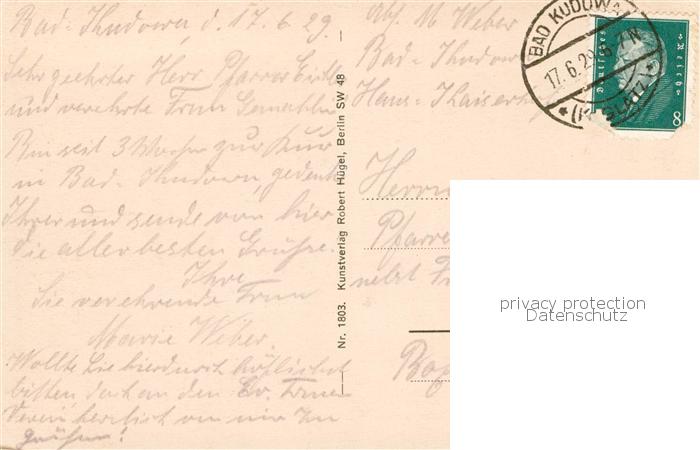 Bad-Kudowa, d. 17.6.29.
Sehr geehrter Herr Pfarrer
und verehrte Frau Gemahlin
Bin seit 3 Wochen zur Kur
in Bad-Kudowa, gedenke
Ihrer und sende von hier
die allerbesten Grüsse.
Ihre
Sie verehrende Frau
Marie Weber.
Wollte Sie hierdurch höflichst
bitten, doch an den Ev. Frauen
Verein herzlich von mir zu
grüßen!
Nr. 1803. Kunstverlag Robert Hügel, Berlin SW 48
Abs. M Weber
Bad-Kudowa
Haus-Kaiser
BAD KUDOWA
17.6.29
GLATZ
Deutsches Reich
8
Herrn
Pfarrer
nebst
privacy protection
Datenschutz